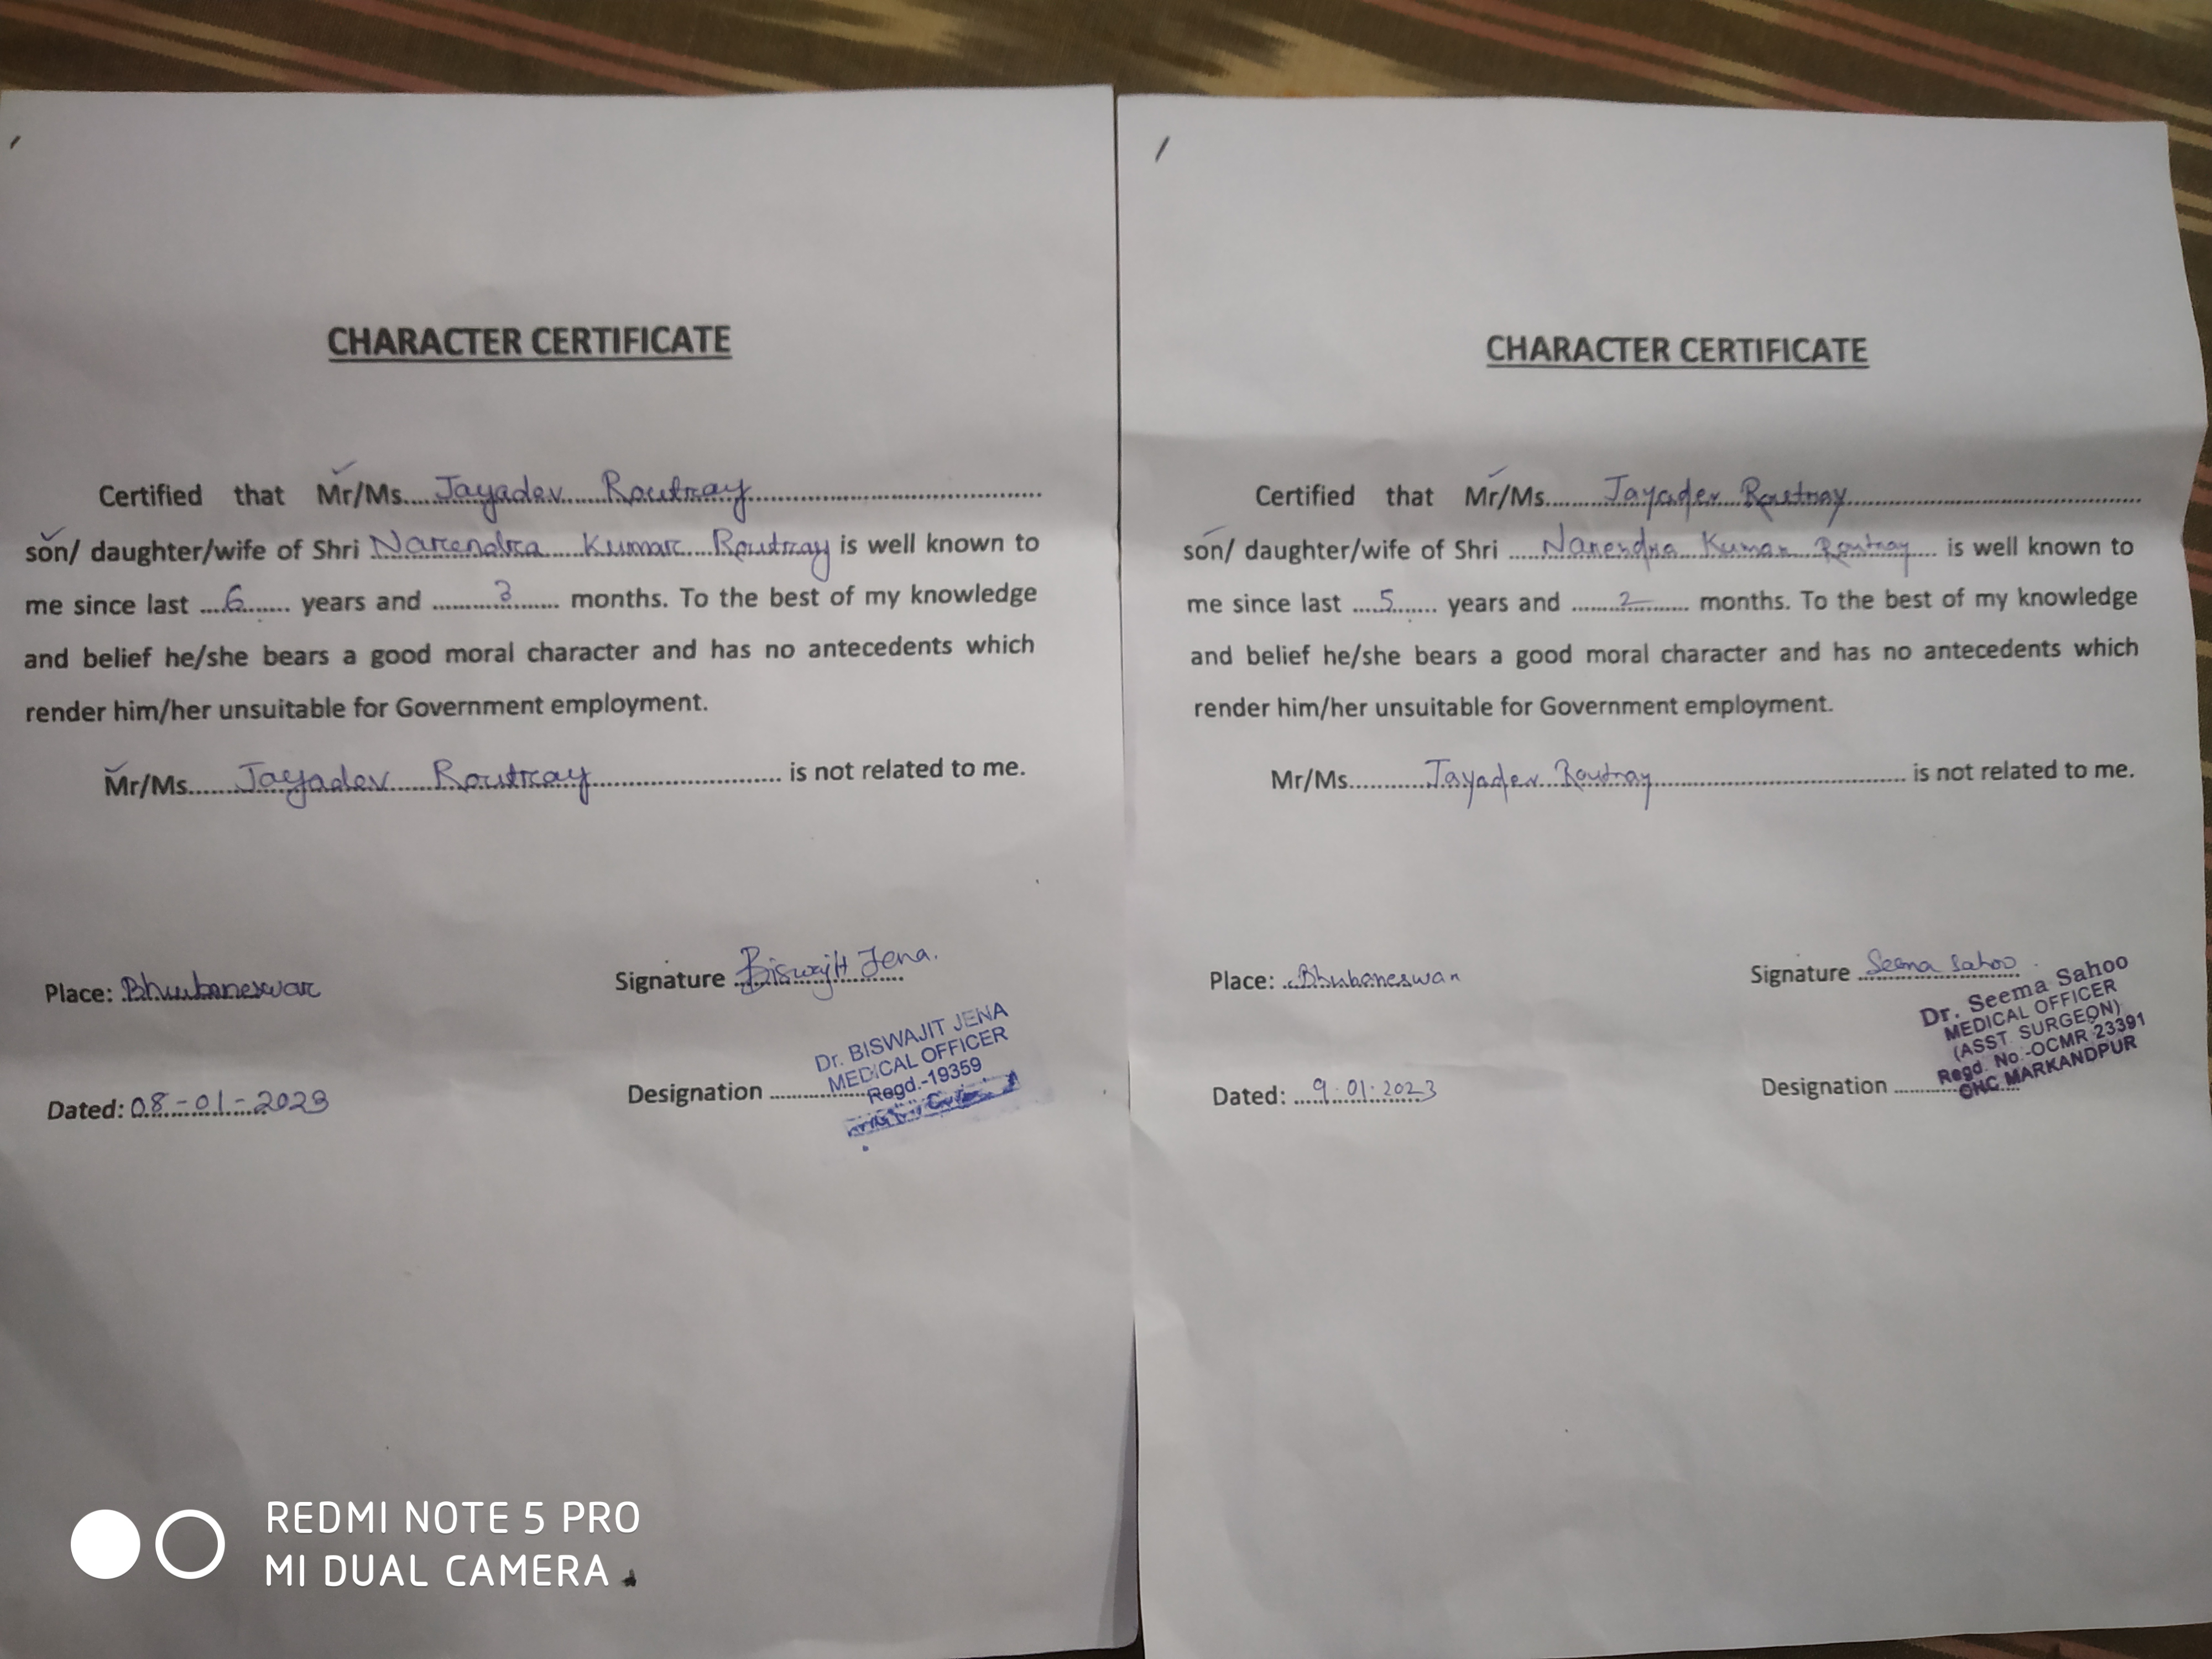 CHARACTER CERTIFICATE
Certified that Mr/Ms....Jayadev Routray....
son/ daughter/wife of Shri Narendra Kumar Routray is well known to
me since last ....6.... years and ....3.... months. To the best of my knowledge
and belief he/she bears a good moral character and has no antecedents which
render him/her unsuitable for Government employment.
Mr/Ms....Jayadev Routray.... is not related to me.
Place: Bhubaneswar
Signature Biswajit Jena.
Dr. BISWAJIT JENA
MEDICAL OFFICER
Regd.-19359
Designation ....
Dated: 08-01-2023
CHARACTER CERTIFICATE
Certified that Mr/Ms....Jayadev Routray....
son/ daughter/wife of Shri ....Narendra Kumar Routray.... is well known to
me since last ....5.... years and ....2.... months. To the best of my knowledge
and belief he/she bears a good moral character and has no antecedents which
render him/her unsuitable for Government employment.
Mr/Ms....Jayadev Routray.... is not related to me.
Place: Bhubaneswar
Signature Seema Sahoo
Dr. Seema Sahoo
MEDICAL OFFICER
(ASST. SURGEON)
Regd. No.-OCMR 23391
CHC MARKANDPUR
Designation ....
Dated: 9.01.2023
REDMI NOTE 5 PRO
MI DUAL CAMERA